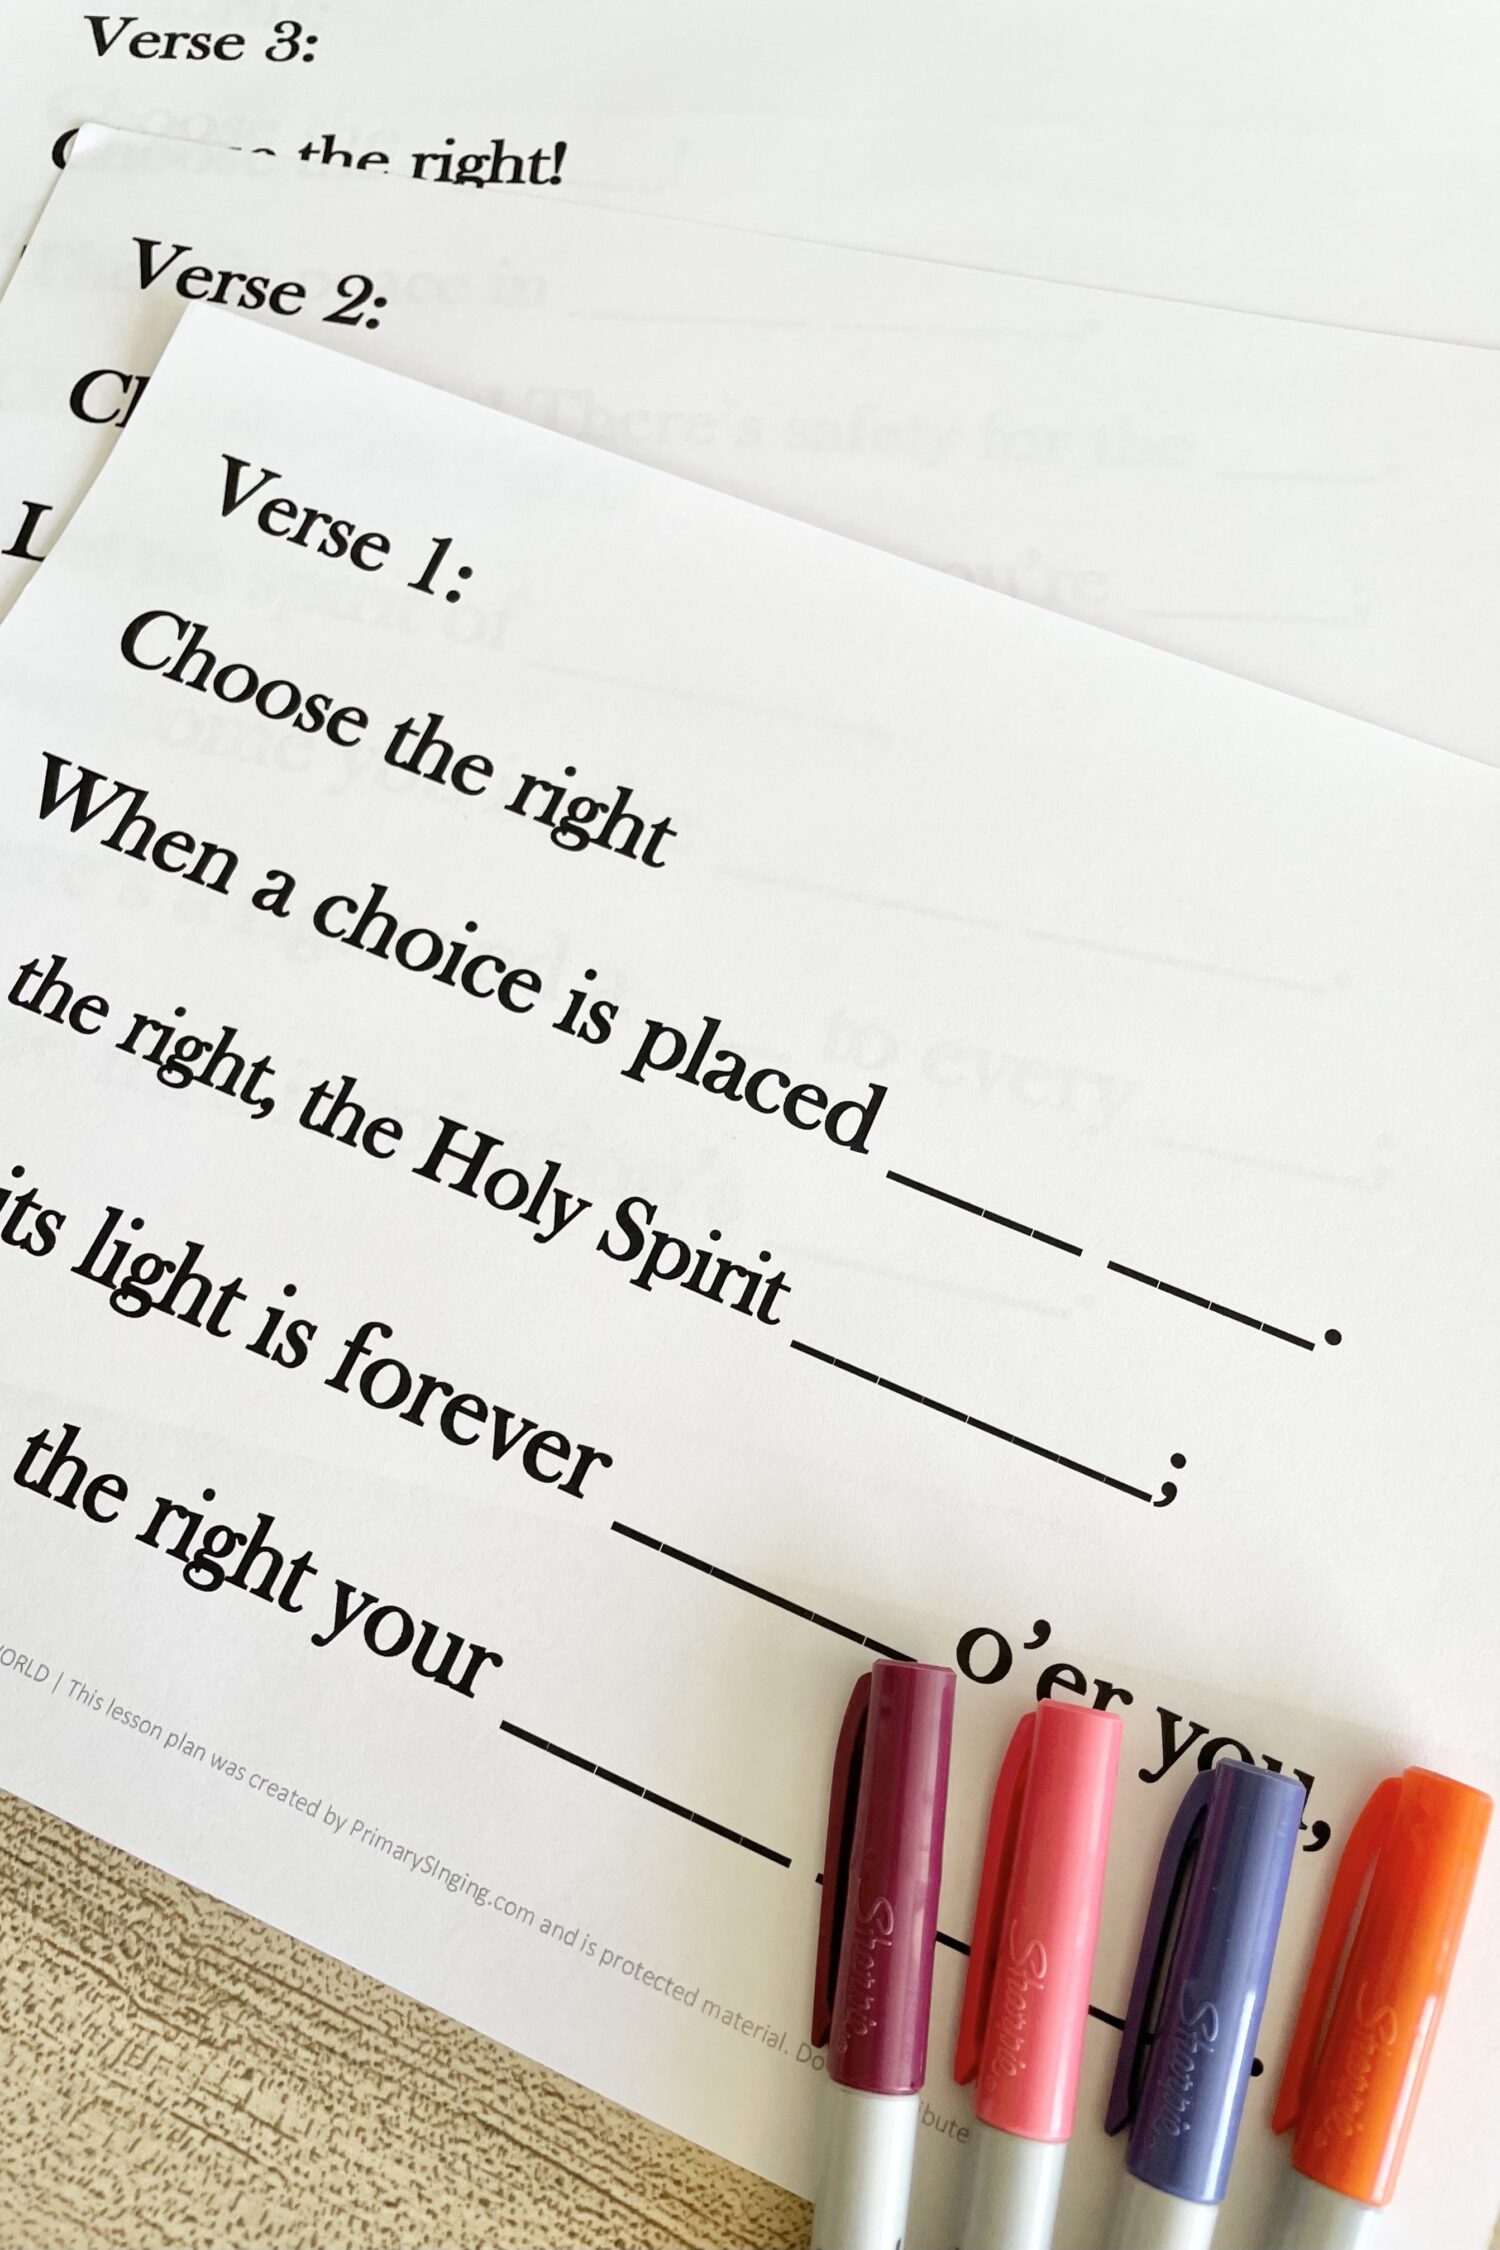 Verse 3:
the right!
Verse 2:
Verse 1:
Choose the right
When a choice is placed ____ ____.
the right, the Holy Spirit _______;
its light is forever ______ o'er you,
the right your ______
WORLD | This lesson plan was created by PrimarySInging.com and is protected material. Do
Sharpie
Sharpie
Sharpie
Sharpie